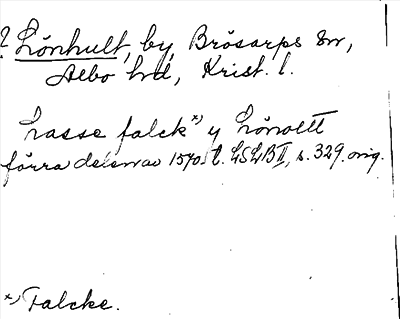 ? Lönhult, by, Brösarps sn,
Albo hd, Krist. l.
Lasse falck *) y Lönoltt
förra delen av 1540-t. LSLB II, s. 329. orig.
*) Falcke.